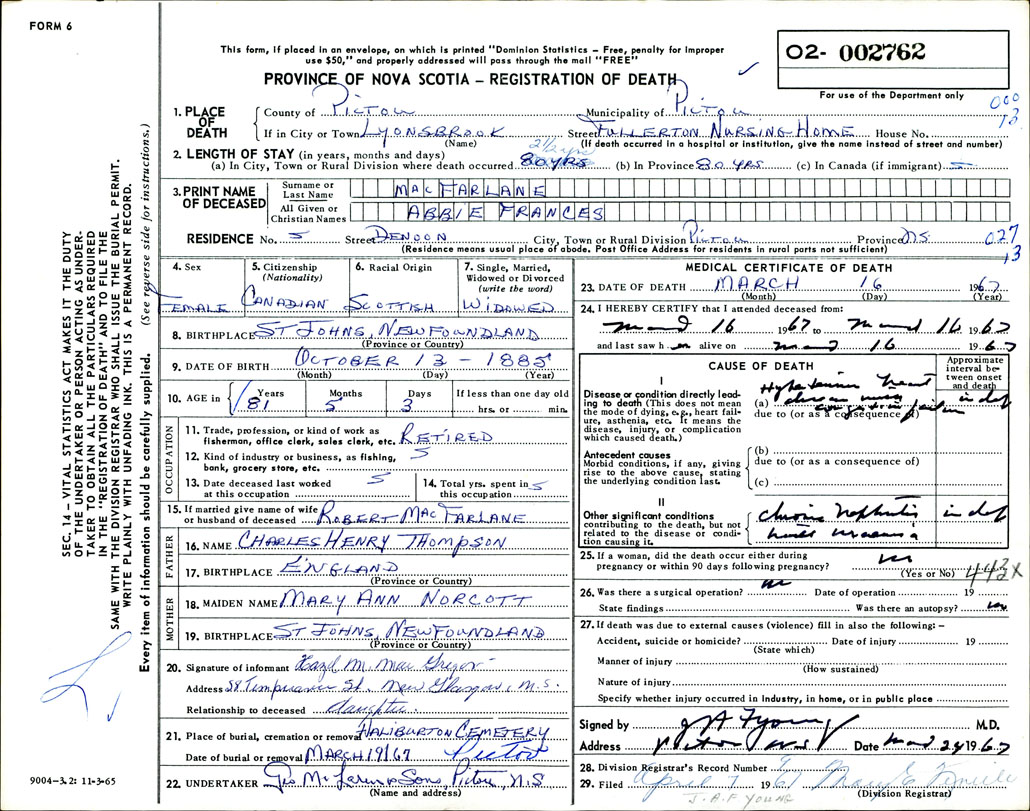 FORM 6
This form, if placed in an envelope, on which is printed "Dominion Statistics – Free, penalty for improper
use $50," and properly addressed will pass through the mail "FREE"
PROVINCE OF NOVA SCOTIA – REGISTRATION OF DEATH
02- 002762
For use of the Department only
000
13
1. PLACE OF DEATH
County of Pictou Municipality of Pictou
If in City or Town Lyonsbrook Street Fullerton Nursing Home House No.
(Name) (If death occurred in a hospital or institution, give the name instead of street and number)
2. LENGTH OF STAY (in years, months and days) 2 1/2 yrs
(a) In City, Town or Rural Division where death occurred 80 yrs (b) In Province 80 yrs (c) In Canada (if immigrant)
3. PRINT NAME OF DECEASED
Surname or Last Name MACFARLANE
All Given or Christian Names ABBIE FRANCES
RESIDENCE No. Street Denoon City, Town or Rural Division Pictou Province NS 027
(Residence means usual place of abode. Post Office Address for residents in rural parts not sufficient) 13
4. Sex Female
5. Citizenship (Nationality) Canadian
6. Racial Origin Scottish
7. Single, Married, Widowed or Divorced (write the word) Widowed
8. BIRTHPLACE St Johns, Newfoundland
(Province or Country)
9. DATE OF BIRTH October 13 - 1885
(Month) (Day) (Year)
10. AGE in Years 81 Months 5 Days 3 If less than one day old hrs. or min.
OCCUPATION
11. Trade, profession, or kind of work as
fisherman, office clerk, sales clerk, etc. Retired
12. Kind of industry or business, as fishing,
bank, grocery store, etc.
13. Date deceased last worked
at this occupation
14. Total yrs. spent in
this occupation
15. If married give name of wife
or husband of deceased Robert MacFarlane
FATHER
16. NAME Charles Henry Thompson
17. BIRTHPLACE England
(Province or Country)
MOTHER
18. MAIDEN NAME Mary Ann Norcott
19. BIRTHPLACE St Johns, Newfoundland
(Province or Country)
20. Signature of informant Hazel M. MacGregor
Address St. New Glasgow, N.S.
Relationship to deceased daughter
21. Place of burial, cremation or removal Haliburton Cemetery
Date of burial or removal March 19/67 Pictou
22. UNDERTAKER Geo McLaren & Sons, Pictou, N.S
(Name and address)
MEDICAL CERTIFICATE OF DEATH
23. DATE OF DEATH March 16 1967
(Month) (Day) (Year)
24. I HEREBY CERTIFY that I attended deceased from:
March 16 1967 to March 16 1967
and last saw h er alive on March 16 1967
CAUSE OF DEATH
Approximate interval between onset and death
I
Disease or condition directly leading to death (This does not mean the mode of dying, e.g., heart failure, asthenia, etc. It means the disease, injury, or complication which caused death.)
(a) Hypertensive heart disease congestive failure indef
due to (or as a consequence of)
Antecedent causes
Morbid conditions, if any, giving rise to the above cause, stating the underlying condition last.
(b)
due to (or as a consequence of)
(c)
II
Other significant conditions
contributing to the death, but not related to the disease or condition causing it.
chronic nephritis indef
uraemia
25. If a woman, did the death occur either during
pregnancy or within 90 days following pregnancy? no
(Yes or No) 443X
26. Was there a surgical operation? no Date of operation 19
State findings Was there an autopsy? no
27. If death was due to external causes (violence) fill in also the following: –
Accident, suicide or homicide? Date of injury 19
(State which)
Manner of injury
(How sustained)
Nature of injury
Specify whether injury occurred in industry, in home, or in public place
Signed by J A F Young M.D.
Address Pictou NS Date Mar 24 1967
28. Division Registrar's Record Number
29. Filed April 7 1967 Mary E
J.A.F YOUNG (Division Registrar)
SEC. 14 – VITAL STATISTICS ACT MAKES IT THE DUTY
OF THE UNDERTAKER OR PERSON ACTING AS UNDER-
TAKER TO OBTAIN ALL THE PARTICULARS REQUIRED
IN THE "REGISTRATION OF DEATH" AND TO FILE THE
SAME WITH THE DIVISION REGISTRAR WHO SHALL ISSUE THE BURIAL PERMIT.
WRITE PLAINLY WITH UNFADING INK. THIS IS A PERMANENT RECORD.
Every item of information should be carefully supplied. (See reverse side for instructions.)
9004-3.2: 11-3-65